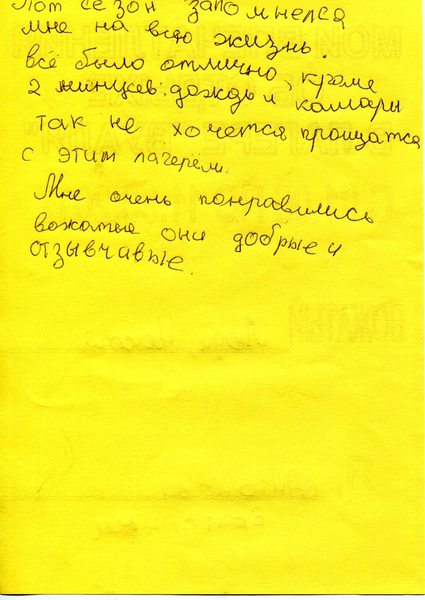 Этот сезон запомнелся
мне на всю жизнь.
всё было отлично, кроме
2 минусев: дождь и камары
так не хочется прощатса
с этим лагерем.
Мне очень понравились
вожатые они добрые и
отзывчавые.